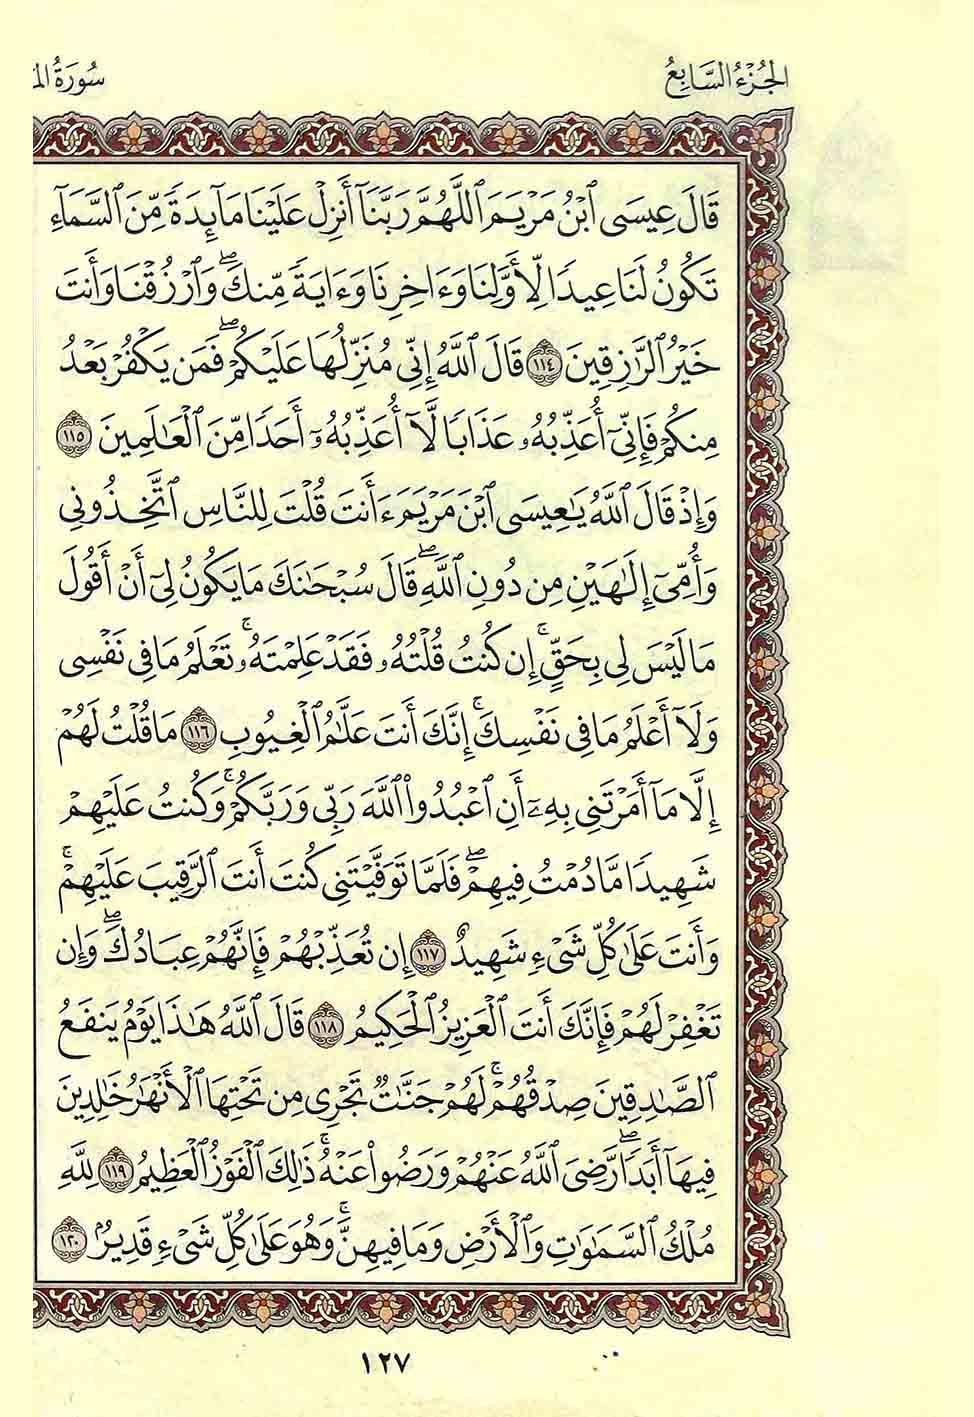 الجُزْءُ السَّابِعُ
سُورَةُ الم
قَالَ عِيسَى ٱبْنُ مَرْيَمَ ٱللَّهُمَّ رَبَّنَآ أَنزِلْ عَلَيْنَا مَآئِدَةً مِّنَ ٱلسَّمَآءِ
تَكُونُ لَنَا عِيدًا لِّأَوَّلِنَا وَءَاخِرِنَا وَءَايَةً مِّنكَۖ وَٱرْزُقْنَا وَأَنتَ
خَيْرُ ٱلرَّٰزِقِينَ ١١٤ قَالَ ٱللَّهُ إِنِّى مُنَزِّلُهَا عَلَيْكُمْۖ فَمَن يَكْفُرْ بَعْدُ
مِنكُمْ فَإِنِّىٓ أُعَذِّبُهُۥ عَذَابًا لَّآ أُعَذِّبُهُۥٓ أَحَدًا مِّنَ ٱلْعَٰلَمِينَ ١١٥
وَإِذْ قَالَ ٱللَّهُ يَٰعِيسَى ٱبْنَ مَرْيَمَ ءَأَنتَ قُلْتَ لِلنَّاسِ ٱتَّخِذُونِى
وَأُمِّىَ إِلَٰهَيْنِ مِن دُونِ ٱللَّهِۖ قَالَ سُبْحَٰنَكَ مَا يَكُونُ لِىٓ أَنْ أَقُولَ
مَا لَيْسَ لِى بِحَقٍّۚ إِن كُنتُ قُلْتُهُۥ فَقَدْ عَلِمْتَهُۥۚ تَعْلَمُ مَا فِى نَفْسِى
وَلَآ أَعْلَمُ مَا فِى نَفْسِكَۚ إِنَّكَ أَنتَ عَلَّٰمُ ٱلْغُيُوبِ ١١٦ مَا قُلْتُ لَهُمْ
إِلَّا مَآ أَمَرْتَنِى بِهِۦٓ أَنِ ٱعْبُدُوا۟ ٱللَّهَ رَبِّى وَرَبَّكُمْۚ وَكُنتُ عَلَيْهِمْ
شَهِيدًا مَّا دُمْتُ فِيهِمْۖ فَلَمَّا تَوَفَّيْتَنِى كُنتَ أَنتَ ٱلرَّقِيبَ عَلَيْهِمْۚ
وَأَنتَ عَلَىٰ كُلِّ شَىْءٍ شَهِيدٌ ١١٧ إِن تُعَذِّبْهُمْ فَإِنَّهُمْ عِبَادُكَۖ وَإِن
تَغْفِرْ لَهُمْ فَإِنَّكَ أَنتَ ٱلْعَزِيزُ ٱلْحَكِيمُ ١١٨ قَالَ ٱللَّهُ هَٰذَا يَوْمُ يَنفَعُ
ٱلصَّٰدِقِينَ صِدْقُهُمْۚ لَهُمْ جَنَّٰتٌ تَجْرِى مِن تَحْتِهَا ٱلْأَنْهَٰرُ خَٰلِدِينَ
فِيهَآ أَبَدًاۖ رَّضِىَ ٱللَّهُ عَنْهُمْ وَرَضُوا۟ عَنْهُۚ ذَٰلِكَ ٱلْفَوْزُ ٱلْعَظِيمُ ١١٩ لِلَّهِ
مُلْكُ ٱلسَّمَٰوَٰتِ وَٱلْأَرْضِ وَمَا فِيهِنَّۚ وَهُوَ عَلَىٰ كُلِّ شَىْءٍ قَدِيرٌۢ ١٢٠
١٢٧